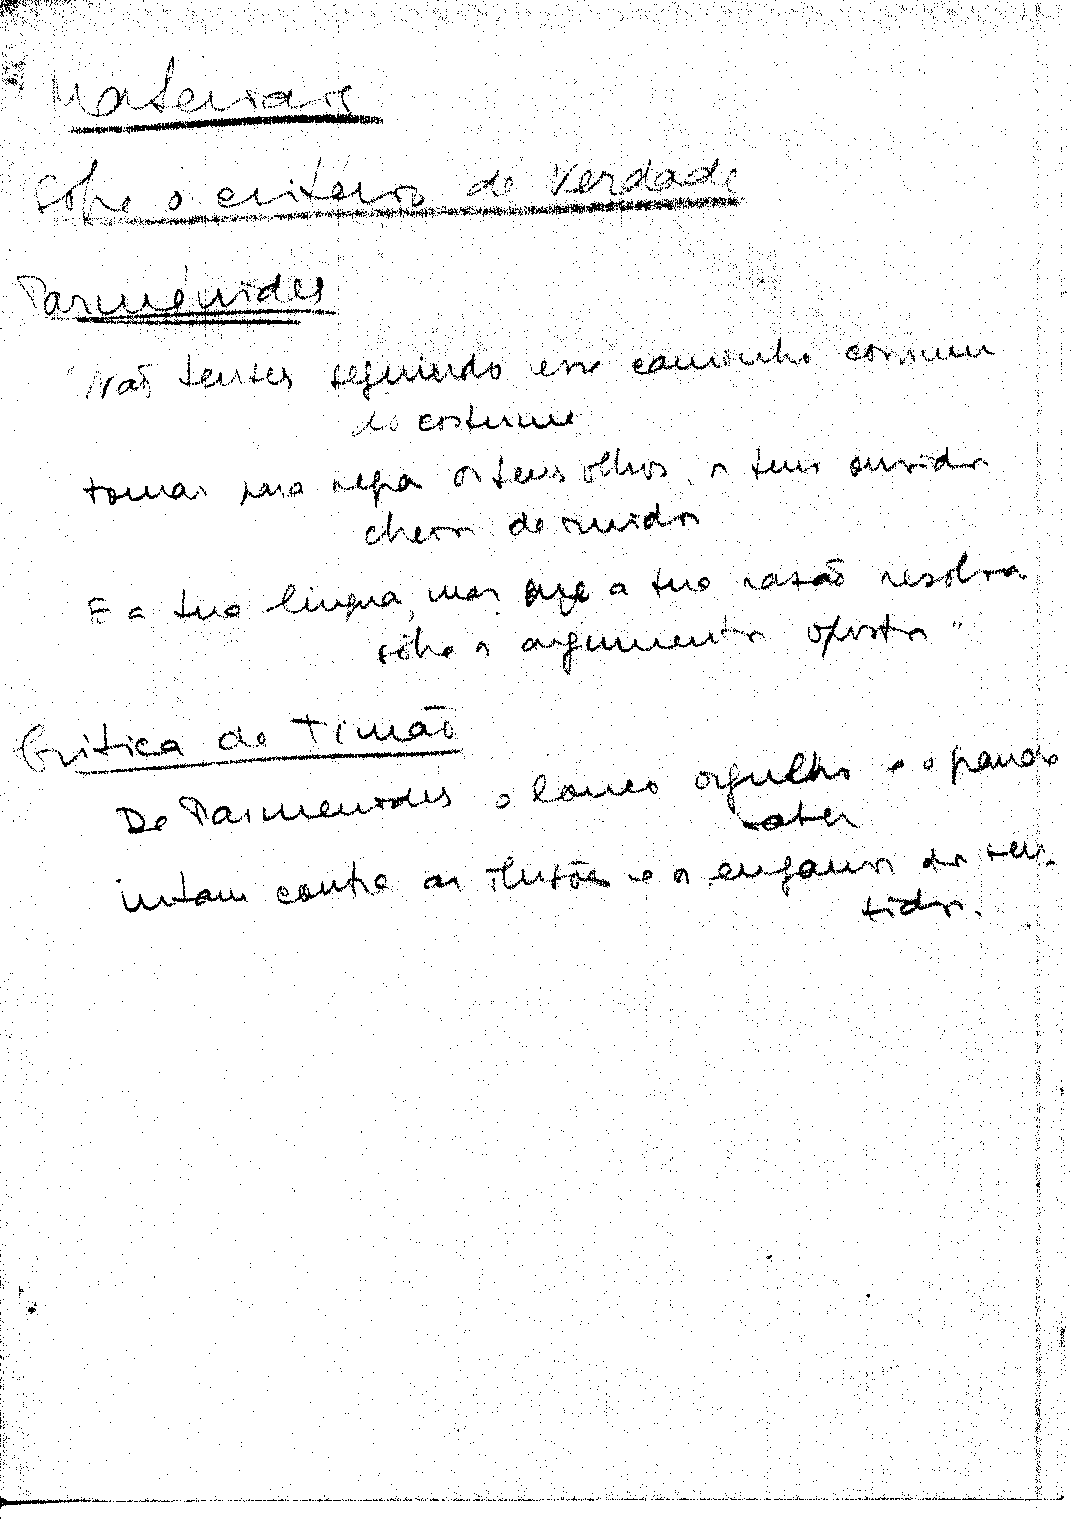 Materiais
Sobre o critério de Verdade
Parménides
"Não tentes seguindo esse caminho comum
do costume
tomar para regra os teus olhos, os teus ouvidos
cheios de ruidos
E a tua lingua, mas que a tua razão resolva
sôbre os argumentos opostos"
Critica de Timão
De Parmenides o louco orgulho e o grande
saber
lutam contra as ilusões e os enganos dos sen-
tidos.